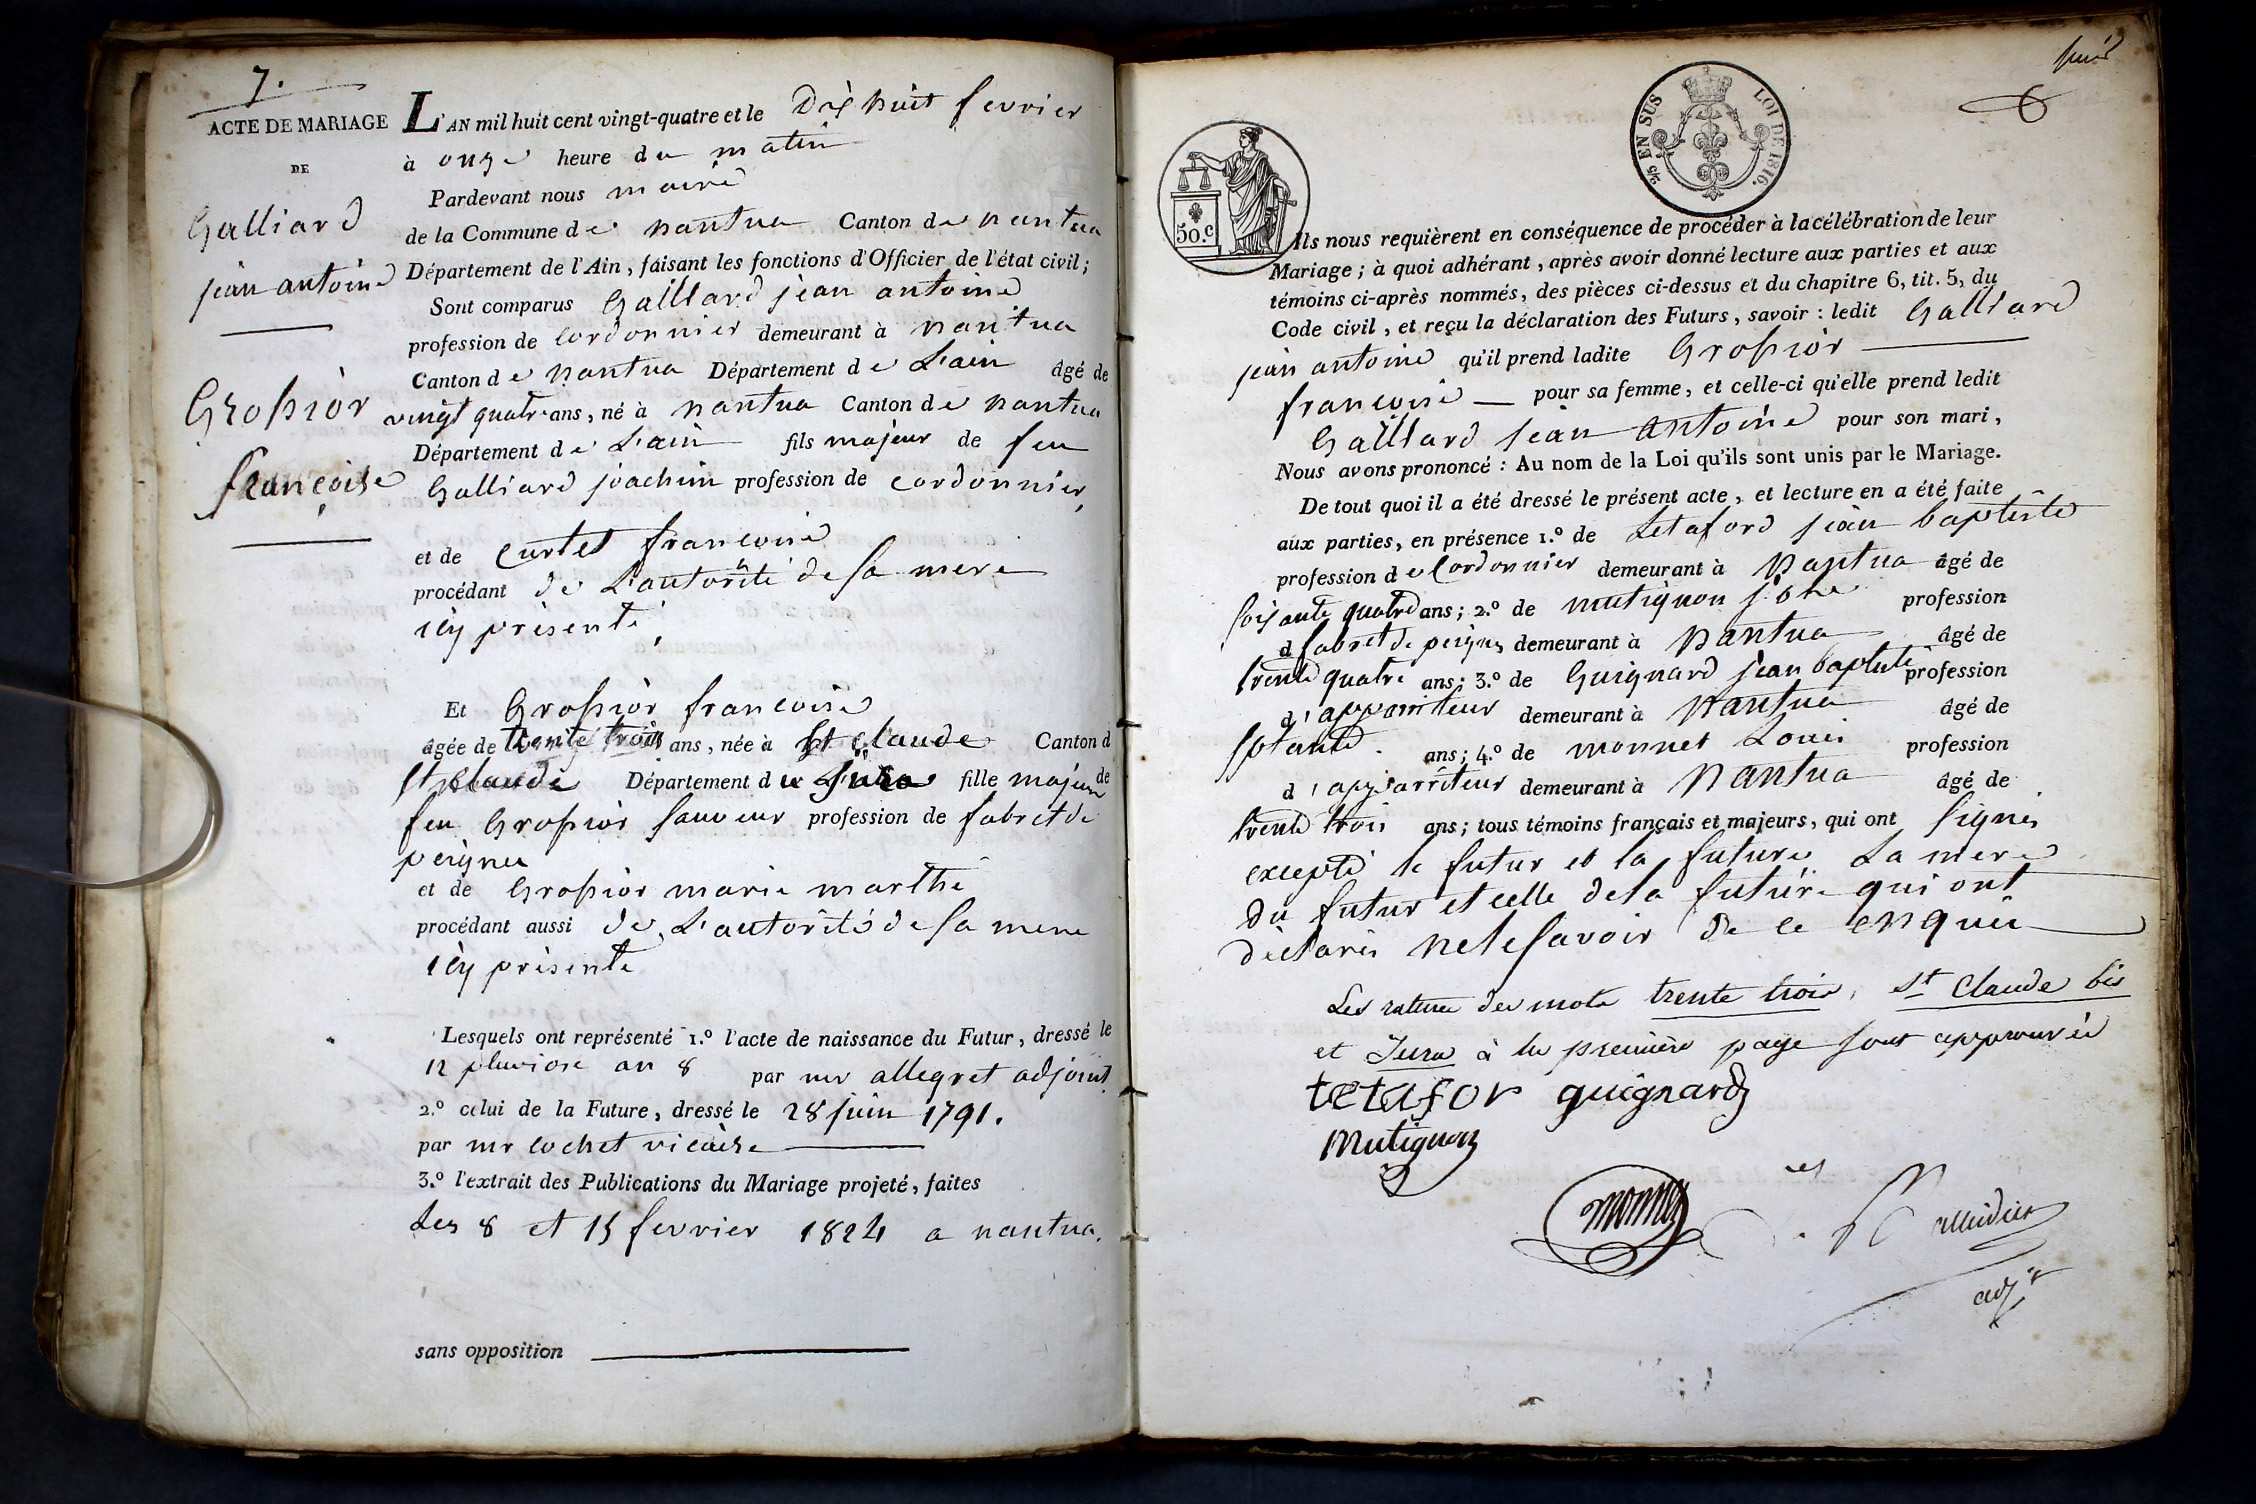 7.
ACTE DE MARIAGE
DE
Galliard
jean antoine
Grossior
françoise
L'AN mil huit cent vingt-quatre et le Dix huit fevrier
à onze heure du matin
Pardevant nous maire
de la Commune de nantua Canton de nantua
Département de l'Ain, faisant les fonctions d'Officier de l'état civil;
Sont comparus Galliard jean antoine
profession de cordonnier demeurant à nantua
Canton de nantua Département de L'ain âgé de
vingt quatre ans, né à nantua Canton de nantua
Département de L'ain fils majeur de feu
Galliard joachim profession de cordonnier,
et de curtet francoise
procédant de L'autorité de sa mere
icy présente,
Et Grossior francoise
âgée de trente trois ans, née à St claude Canton de
St claude Département du Jura fille majeure
feu Grossior sauveur profession de fabrct de
peignes
et de Grossior marie marthe
procédant aussi de L'autorité de sa mere
icy présente
Lesquels ont représenté 1.º l'acte de naissance du Futur, dressé le
12 pluviose an 8 par mr allegret adjoint.
2.º celui de la Future, dressé le 28 juin 1791.
par mr cochet vicaire
3.º l'extrait des Publications du Mariage projeté, faites
Les 8 et 15 fevrier 1824 a nantua.
sans opposition
25 EN SUS LOI DE 1816.
50.c
Ils nous requièrent en conséquence de procéder à la célébration de leur
Mariage; à quoi adhérant, après avoir donné lecture aux parties et aux
témoins ci-après nommés, des pièces ci-dessus et du chapitre 6, tit. 5, du
Code civil, et reçu la déclaration des Futurs, savoir: ledit Galliard
jean antoine qu'il prend ladite Grossior
francoise pour sa femme, et celle-ci qu'elle prend ledit
Galliard jean antoine pour son mari,
Nous avons prononcé: Au nom de la Loi qu'ils sont unis par le Mariage.
De tout quoi il a été dressé le présent acte, et lecture en a été faite
aux parties, en présence 1.º de Letaford jean baptiste
profession de Cordonnier demeurant à Nantua âgé de
soixante quatre ans; 2.º de mutignon profession
d fabrct de peignes demeurant à Nantua âgé de
trente quatre ans; 3.º de Guignard jean baptiste profession
d'appariteur demeurant à Nantua âgé de
ans; 4.º de monnet Louis profession
d'appariteur demeurant à Nantua âgé de
trente trois ans; tous témoins français et majeurs, qui ont signés
excepté le futur et la future La mere
du futur et celle de la future qui ont
déclarés ne le savoir de ce enquis
Les ratures des mots trente trois, St Claude bis
et Jura à la première page sont approuvées
tetafor guignard
Mutignon
monnet
adj.r